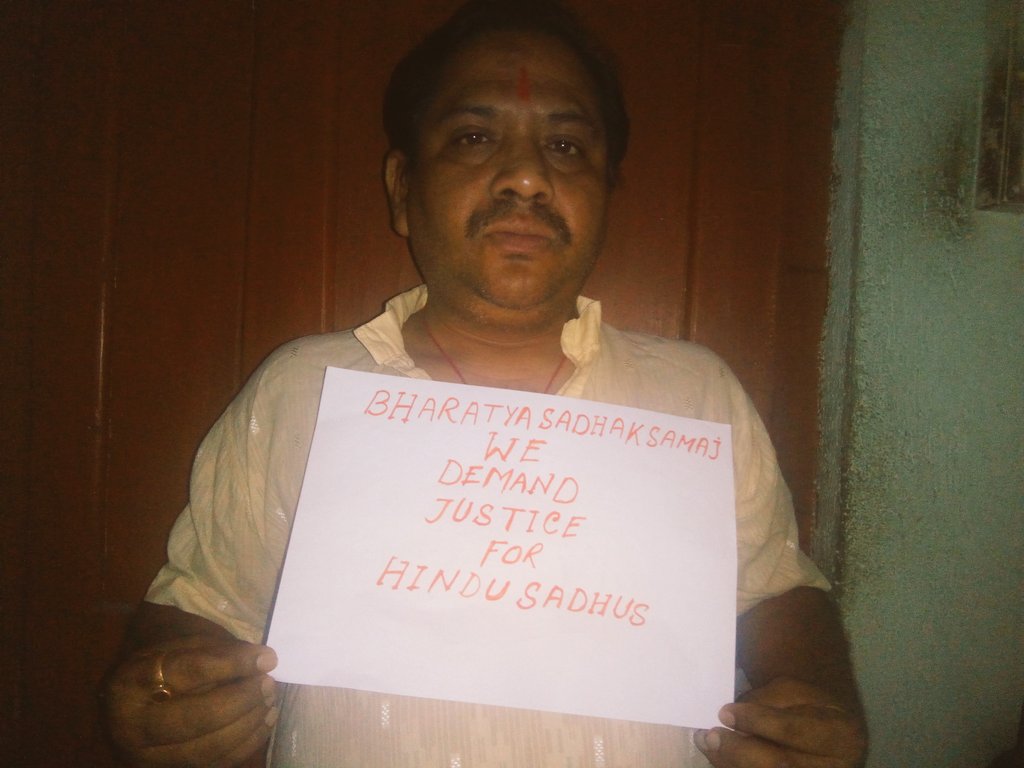 BHARATYA SADHAK SAMAJ
WE
DEMAND
JUSTICE
FOR
HINDU SADHUS